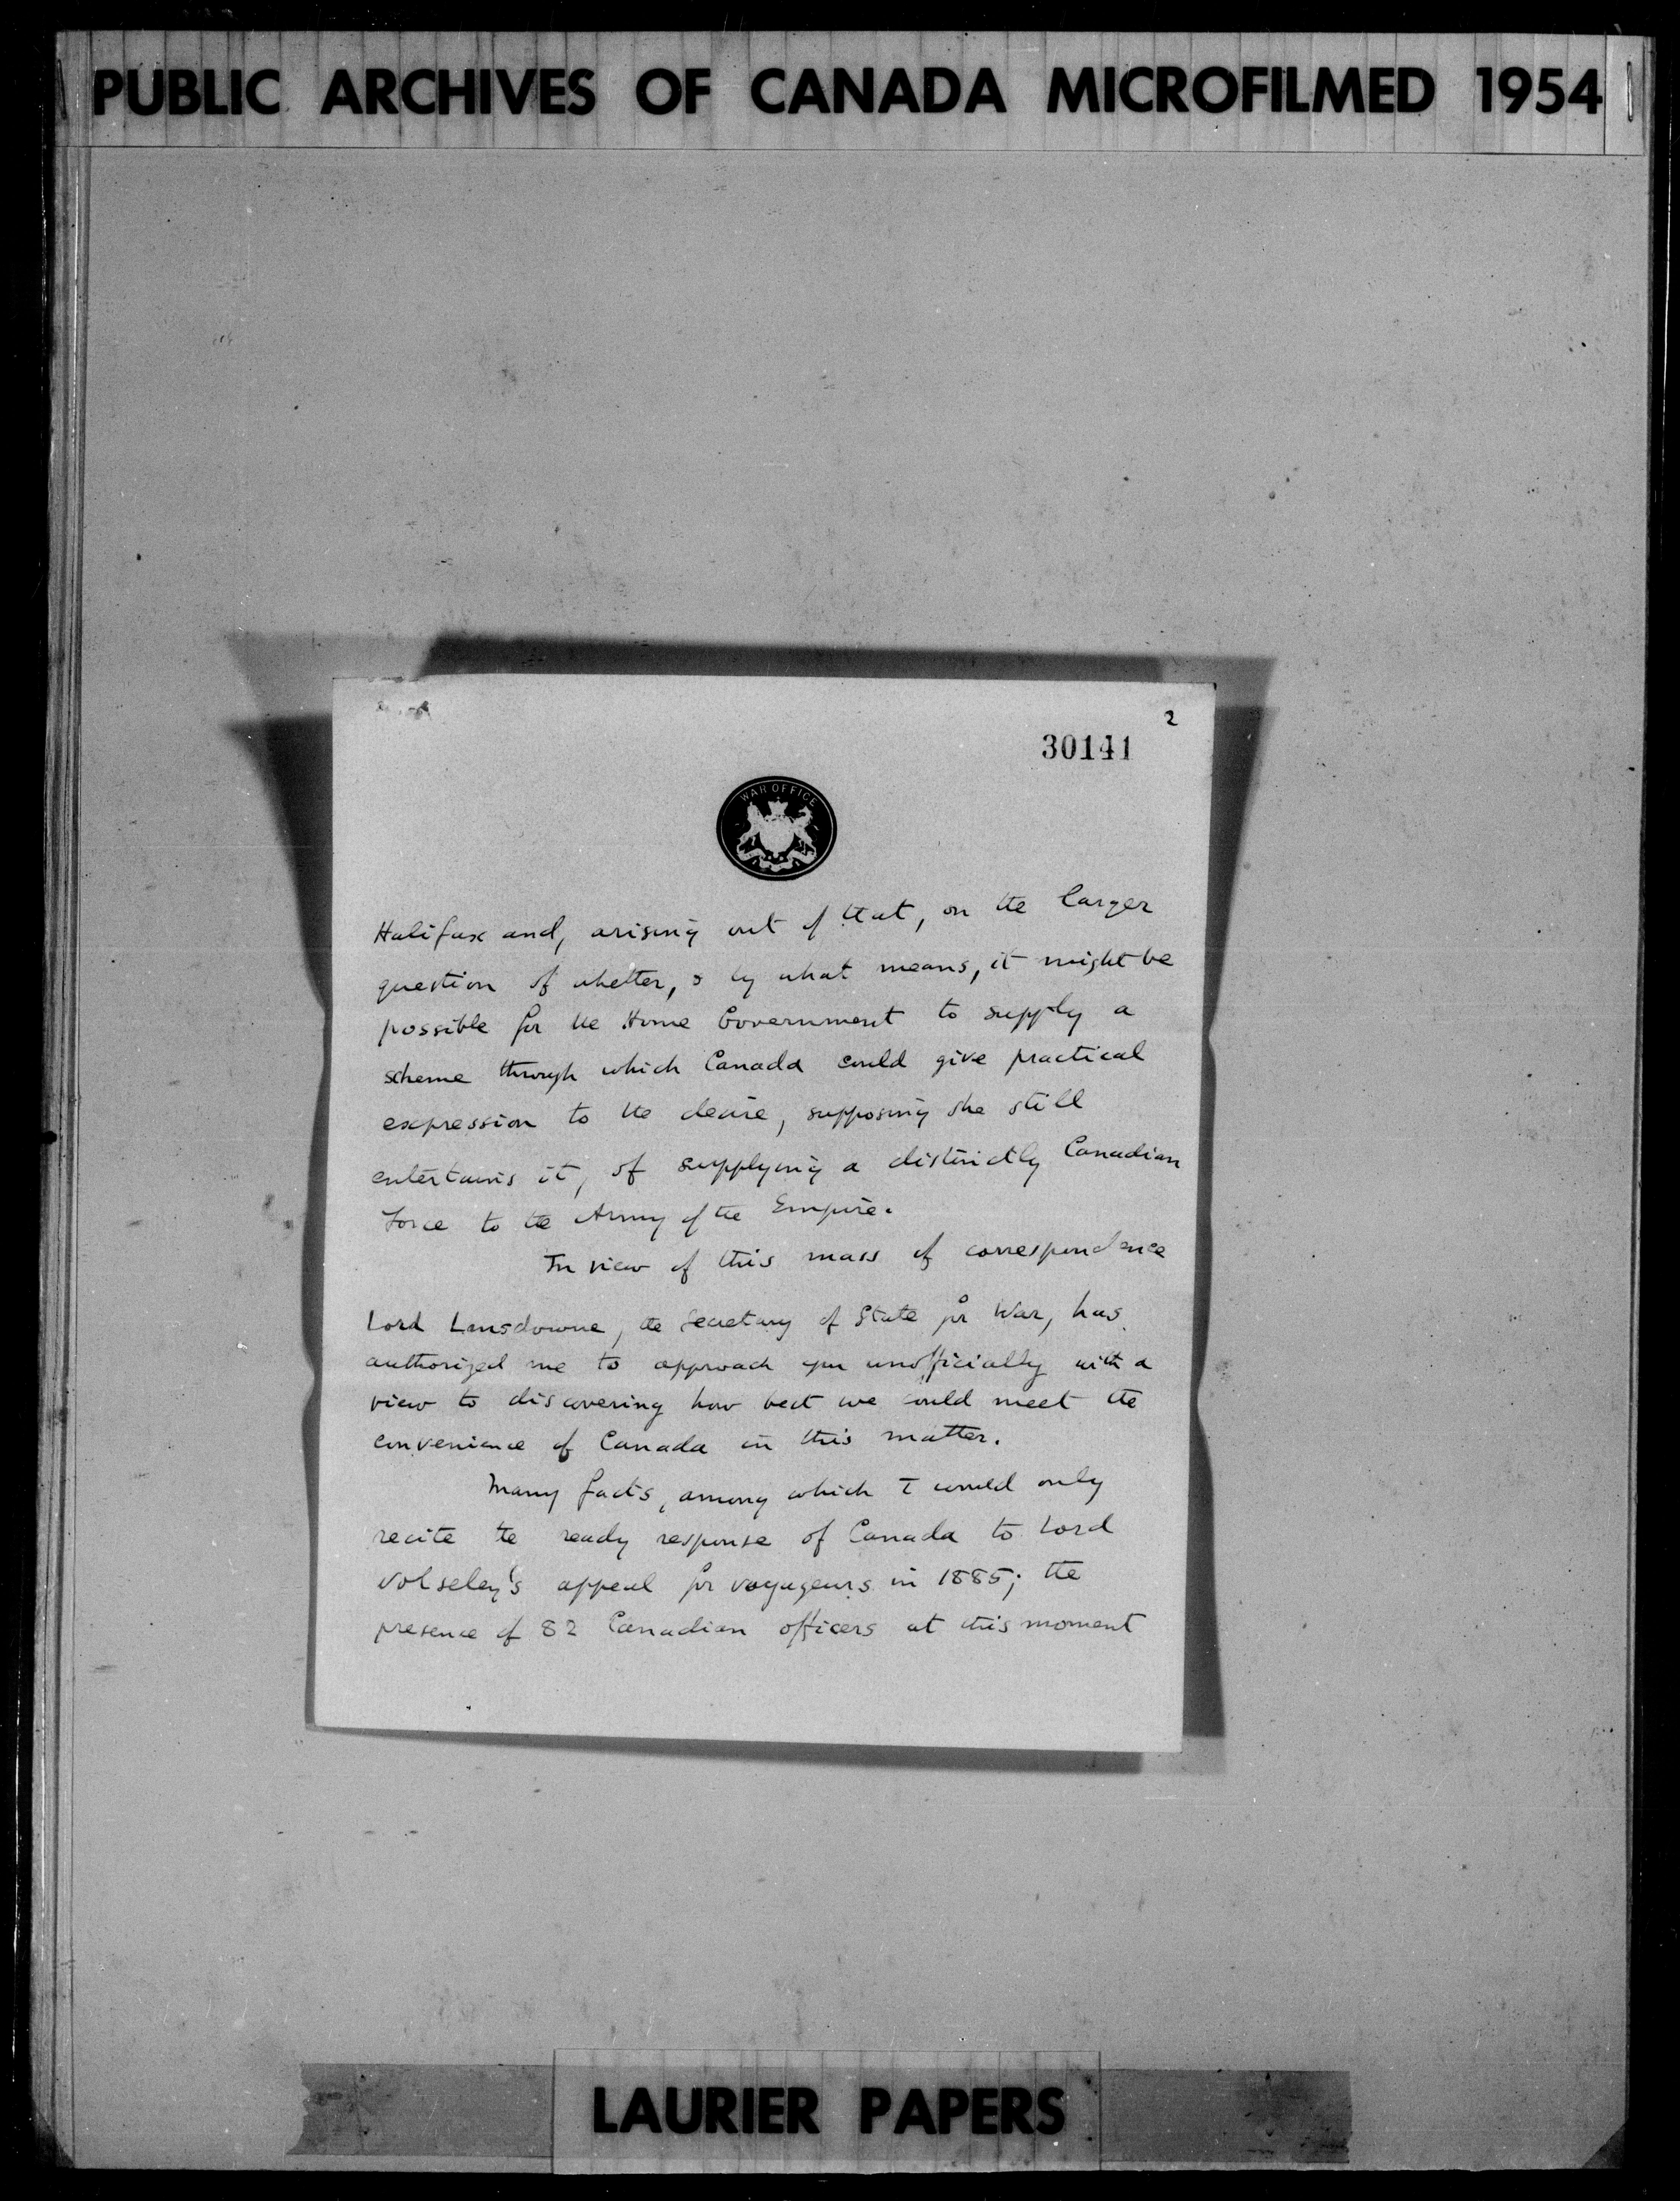 PUBLIC ARCHIVES OF CANADA MICROFILMED 1954
2
30141
WAR OFFICE
Halifax and, arising out of that, on the larger
question of whether, & by what means, it might be
possible for the Home Government to supply a
scheme through which Canada could give practical
expression to the desire, supposing she still
entertains it, of supplying a distinctly Canadian
Force to the Army of the Empire.
In view of this mass of correspondence
Lord Lansdowne, the Secretary of State for War, has
authorized me to approach you unofficially with a
view to discovering how best we could meet the
convenience of Canada in this matter.
Many facts, among which I would only
recite the ready response of Canada to Lord
Wolseley's appeal for voyageurs in 1885; the
presence of 82 Canadian officers at this moment
LAURIER PAPERS